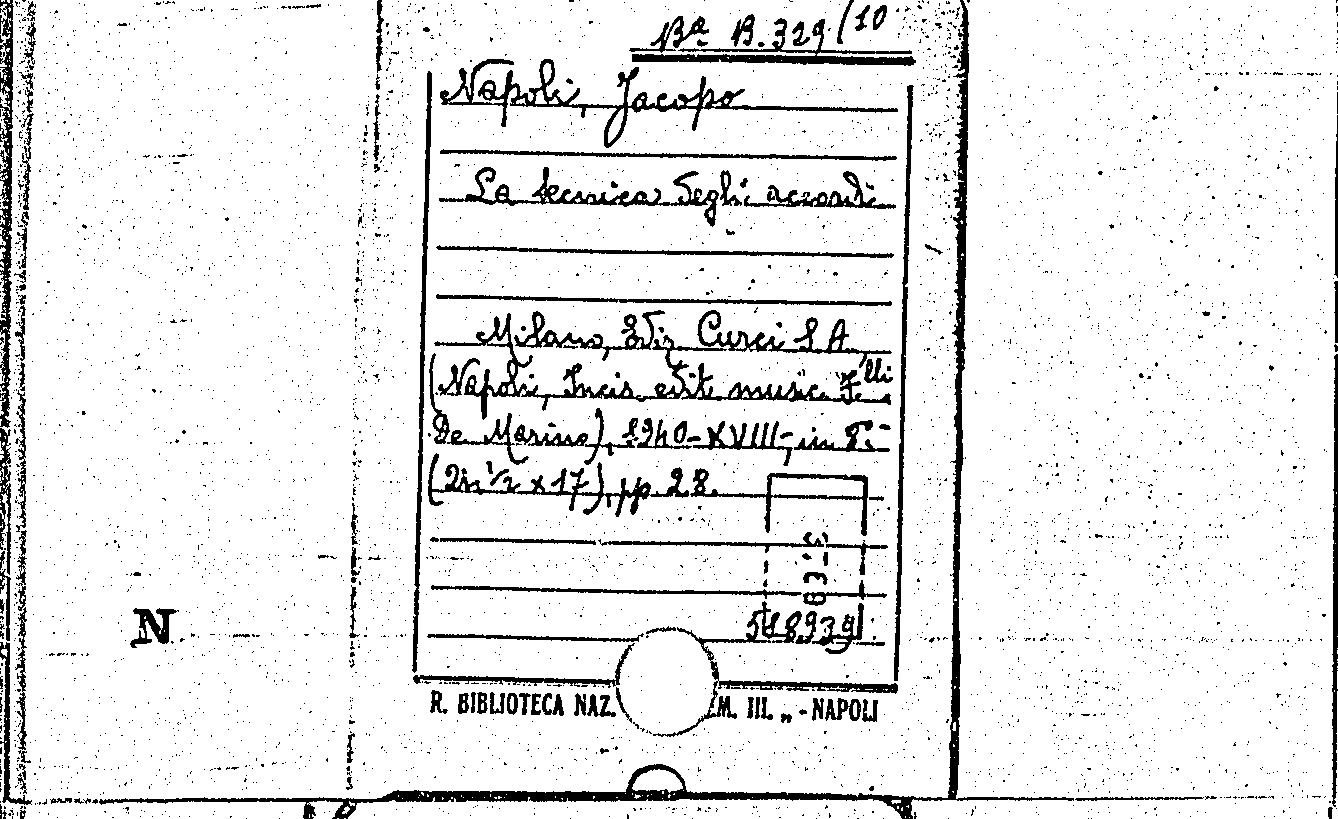 Ba B.329/10
Napoli, Jacopo
La tecnica degli accordi
Milano, Ediz. Curci S. A.
(Napoli, Incis. edit. music. F.lli
De Marino), 1940-XVIII, in 8°.
(24 1/2 x 17), pp. 28.
518939
N
R. BIBLIOTECA NAZ. EM. III. „ - NAPOLI